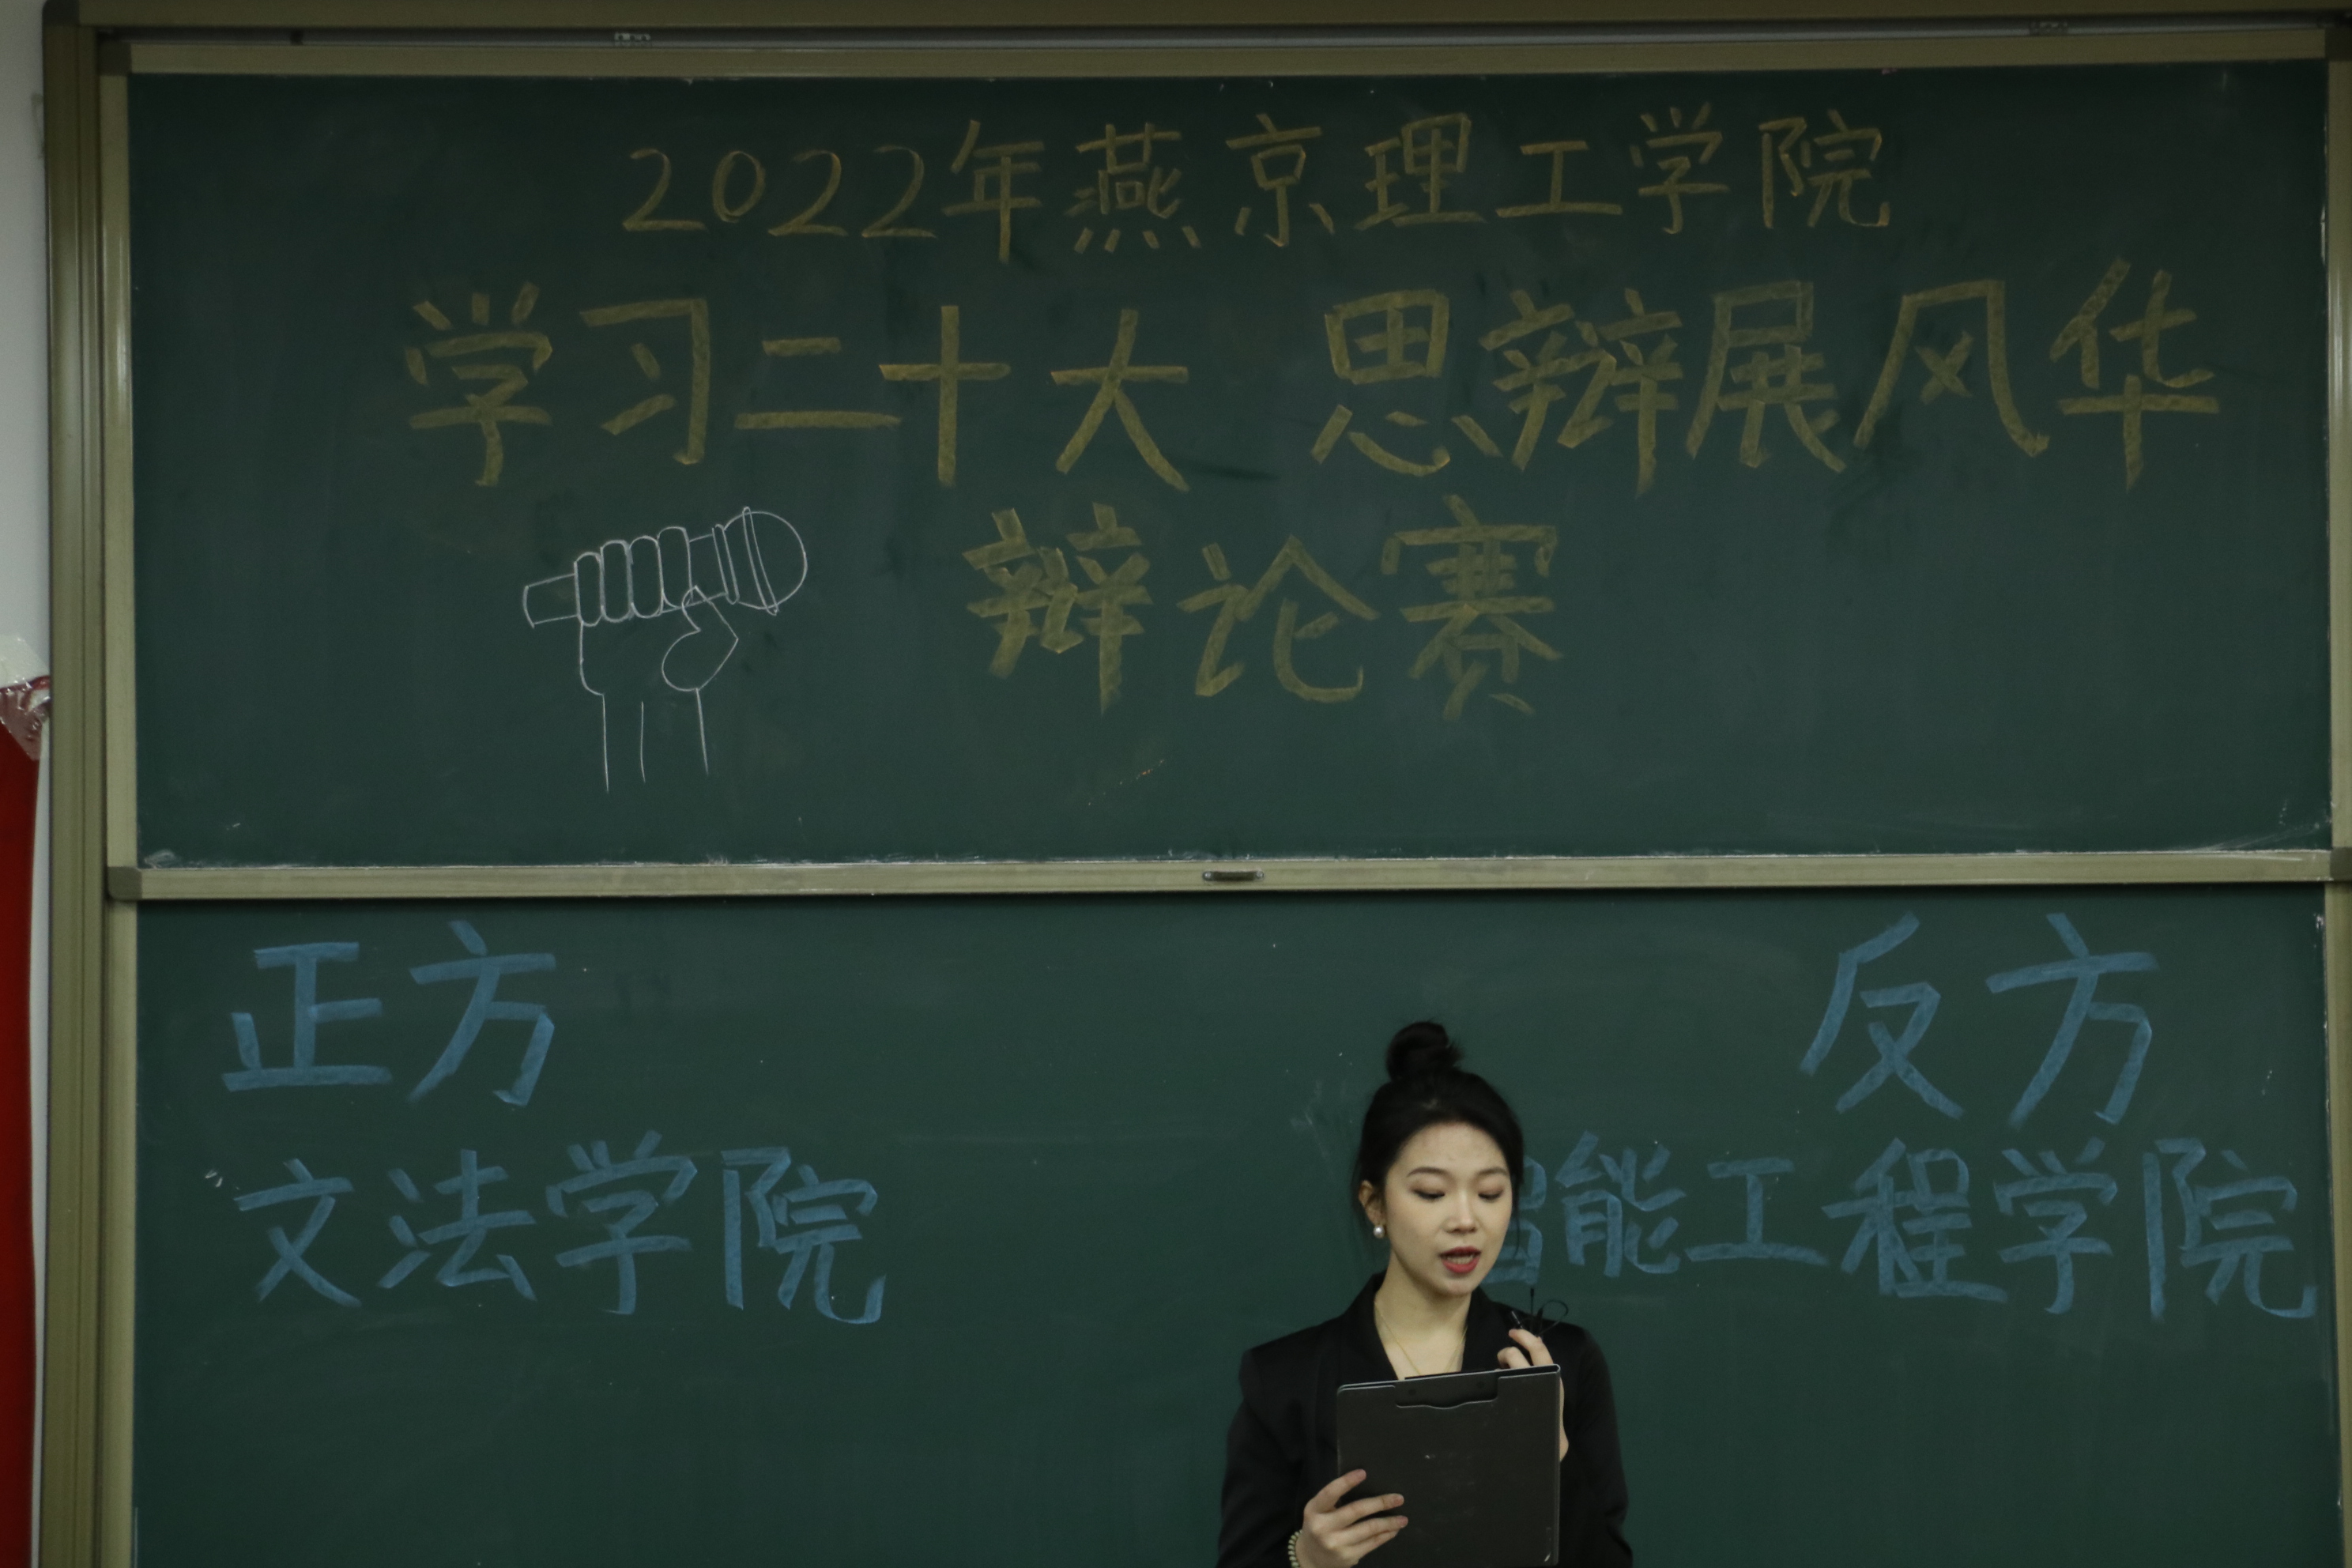 2022年燕京理工学院
学习二十大 思辩展风华
辩论赛
正方
反方
文法学院
智能工程学院